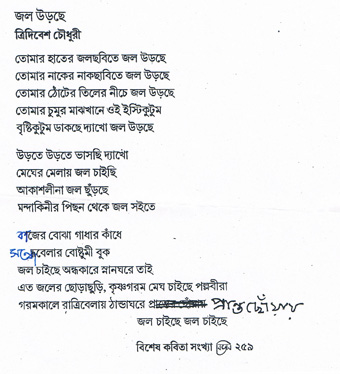 জল উড়ছে
ত্রিদিবেশ চৌধুরী
তোমার হাতের জলছবিতে জল উড়ছে
তোমার নাকের নাকছাবিতে জল উড়ছে
তোমার ঠোঁটের তিলের নীচে জল উড়ছে
তোমার চুমুর মাঝখানে ওই ইস্টিকুটুম
বৃষ্টিকুটুম ডাকছে দ্যাখো জল উড়ছে
উড়তে উড়তে ভাসছি দ্যাখো
মেঘের মেলায় জল চাইছি
আকাশলীনা জল ছুঁড়ছে
মন্দাকিনীর পিছন থেকে জল সইতে
কাজের বোঝা গাধার কাঁধে
সন্ধেবেলার বোষ্টুমী বুক
জল চাইছে অন্ধকারে স্নানঘরে তাই
এত জলের ছোড়াছুড়ি, কৃষ্ণগরম মেঘ চাইছে পল্লবীরা
গরমকালে রাত্রিবেলায় ঠান্ডাঘরে প্রান্তছোঁয়ায়
জল চাইছে জল চাইছে
বিশেষ কবিতা সংখ্যা ২৫৯